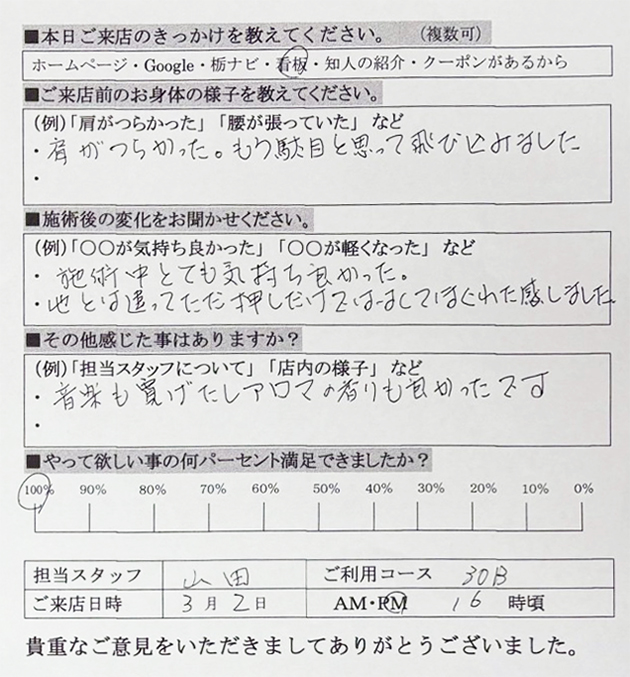 ■本日ご来店のきっかけを教えてください。 (複数可)
ホームページ・Google・栃ナビ・看板・知人の紹介・クーポンがあるから
■ご来店前のお身体の様子を教えてください。
(例)「肩がつらかった」「腰が張っていた」など
・肩がつらかった。もう駄目と思って飛び込みました
・
■施術後の変化をお聞かせください。
(例)「〇〇が気持ち良かった」「〇〇が軽くなった」など
・施術中とても気持ち良かった。
・他とは違ってただ押しだけではなくてほぐれた感しました
■その他感じた事はありますか?
(例)「担当スタッフについて」「店内の様子」など
・音楽も寛げたしアロマの香りも良かったです
・
■やって欲しい事の何パーセント満足できましたか?
100% 90% 80% 70% 60% 50% 40% 30% 20% 10% 0%
担当スタッフ 山田 ご利用コース 30B
ご来店日時 3月2日 AM・PM 16時頃
貴重なご意見をいただきましてありがとうございました。